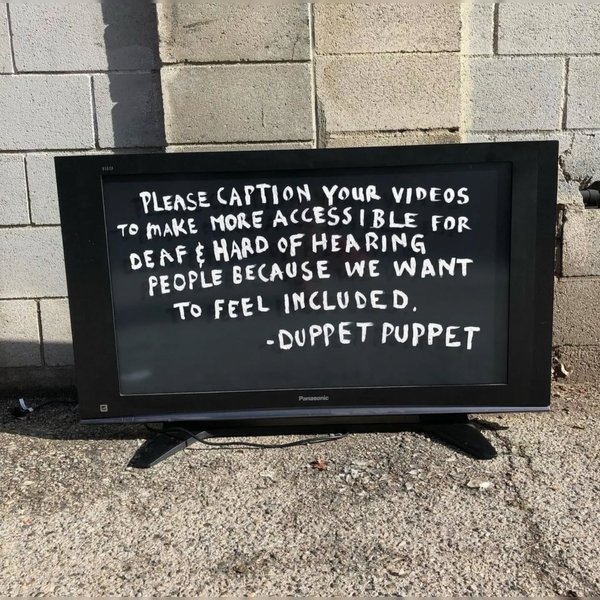 PLEASE CAPTION YOUR VIDEOS
TO MAKE MORE ACCESSIBLE FOR
DEAF & HARD OF HEARING
PEOPLE BECAUSE WE WANT
TO FEEL INCLUDED.
-DUPPET PUPPET
Panasonic